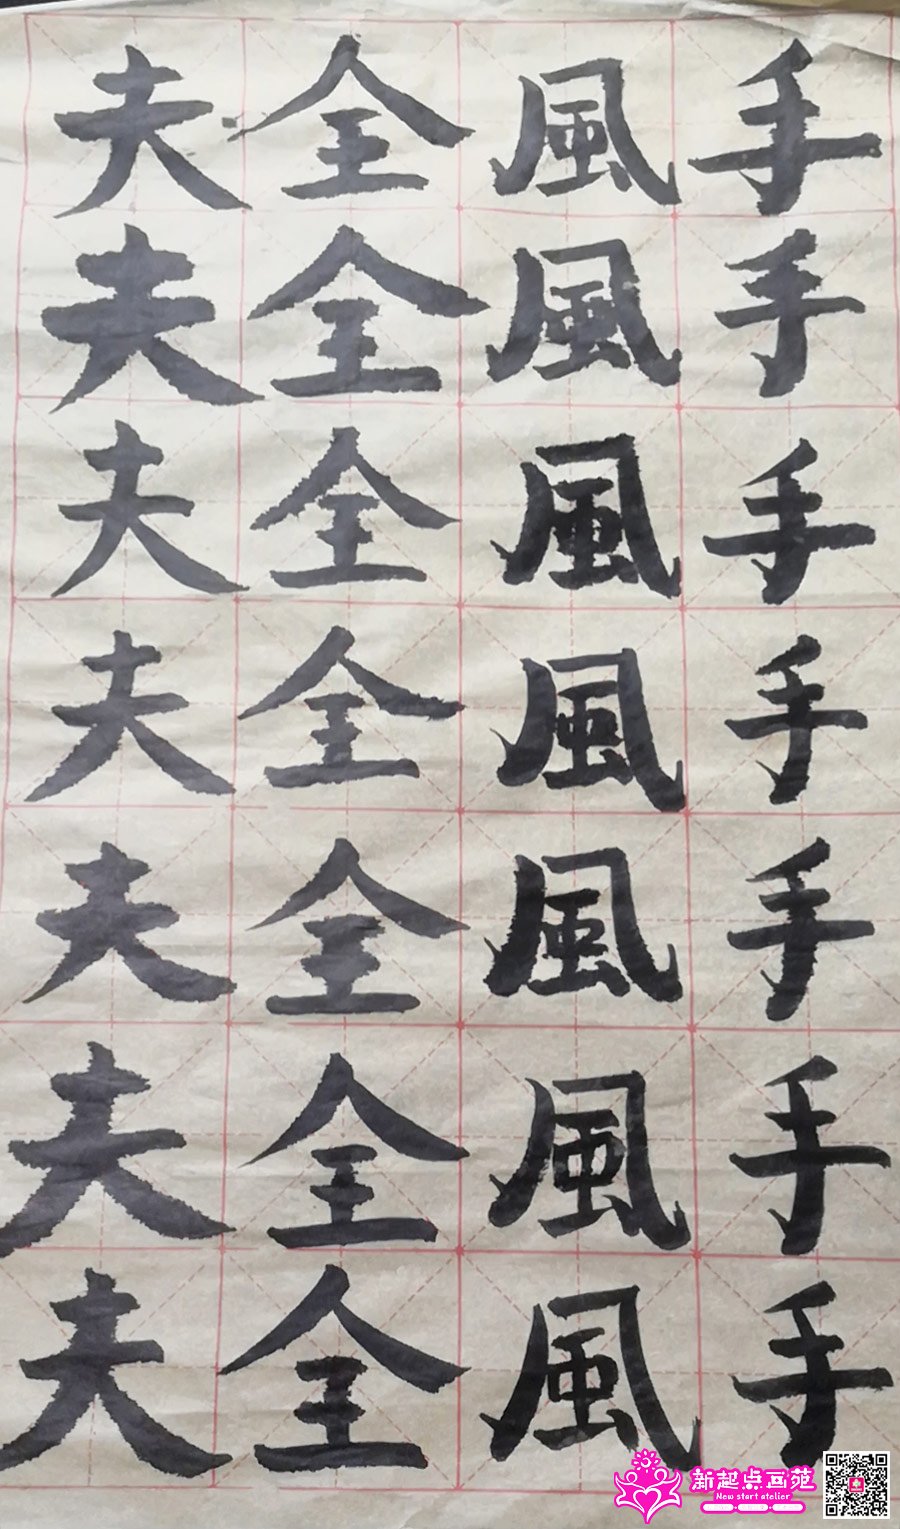 手手手手手手手
風風風風風風風
全全全全全全全
夫夫夫夫夫夫夫
新起点画苑
New start atelier